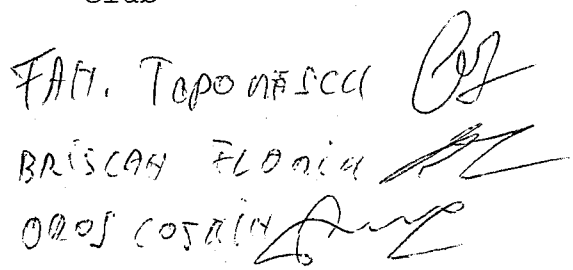 FAM. TOPONĂSCU
BRISCAN FLORIN
OROS COSMIN